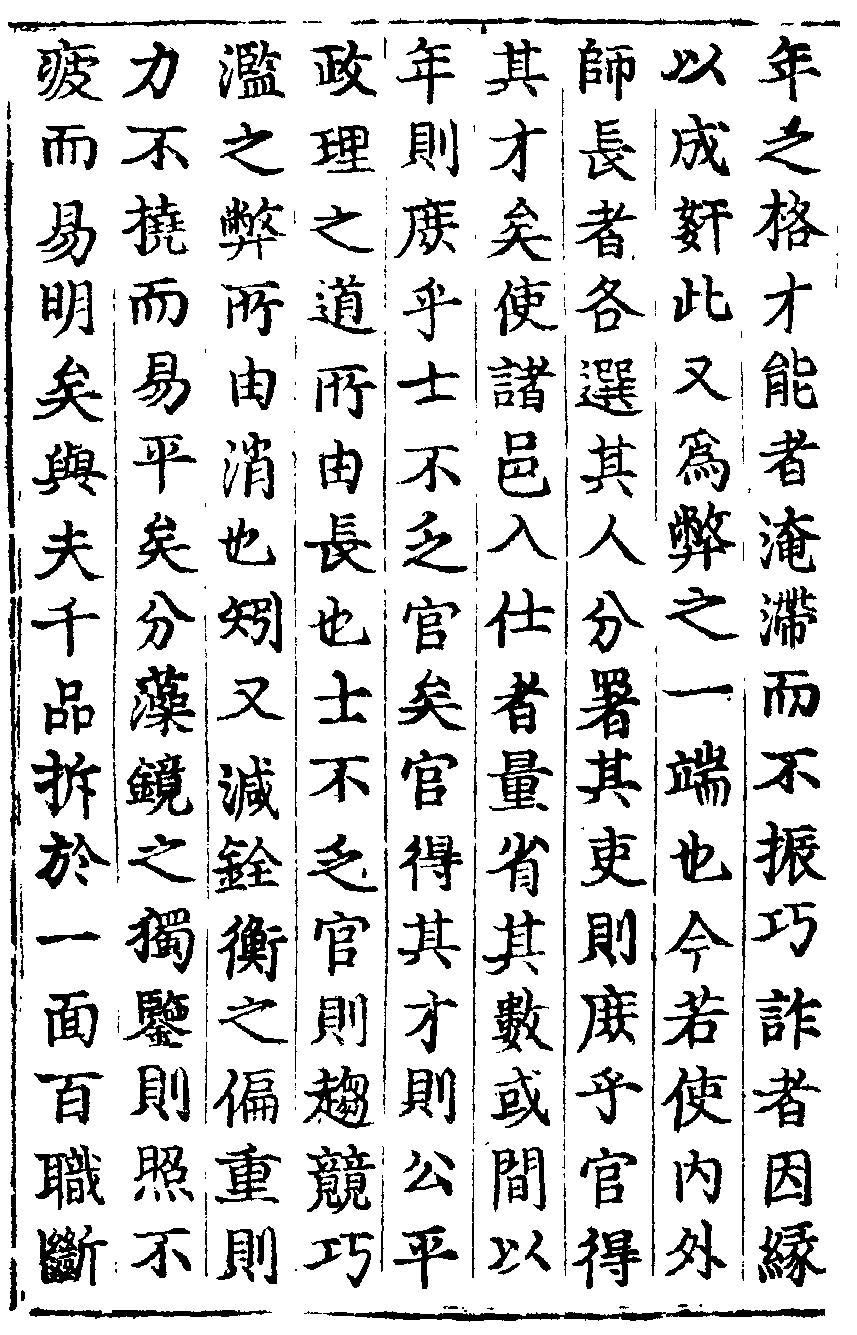 年之格才能者淹滯而不振巧詐者因縁
以成姧此又爲弊之一端也今若使内外
師長者各選其人分署其吏則庻乎官得
其才矣使諸邑入仕者量省其數或間以
年則庻乎士不乏官矣官得其才則公平
政理之道所由長也士不乏官則趨競巧
濫之弊所由消也矧又減銓衡之偏重則
力不撓而易平矣分藻鏡之獨鑒則照不
疲而易明矣與夫千品折於一面百職斷